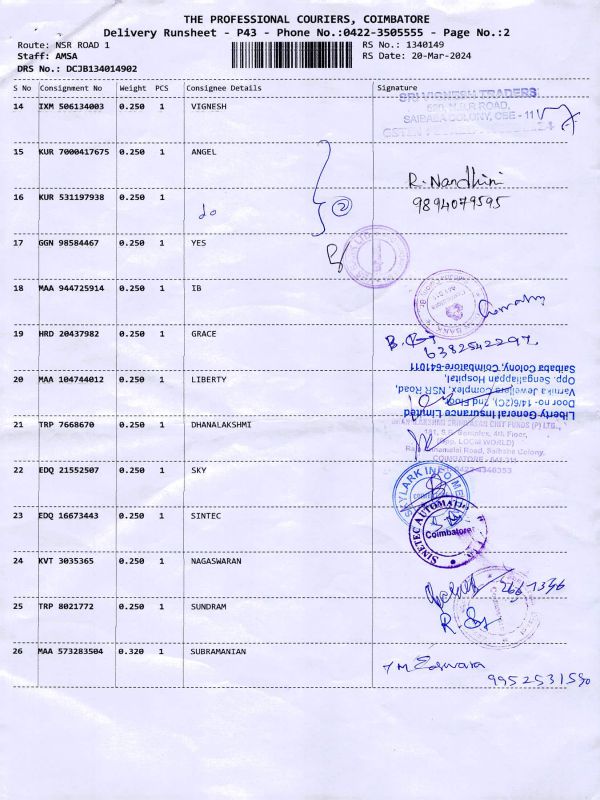 THE PROFESSIONAL COURIERS, COIMBATORE
Delivery Runsheet - P43 - Phone No.:0422-3505555 - Page No.:2
Route: NSR ROAD 1 RS No.: 1340149
Staff: AMSA RS Date: 20-Mar-2024
DRS No.: DCJB134014902
S No Consignment No Weight PCS Consignee Details Signature
14 IXM 506134003 0.250 1 VIGNESH
SRI VIGNESH TRADERS
N.S.R. ROAD,
SAIBABA COLONY, CBE - 11
15 KUR 7000417675 0.250 1 ANGEL
R. Nandhini
9894079595
16 KUR 531197938 0.250 1
do
2
17 GGN 98584467 0.250 1 YES
18 MAA 944725914 0.250 1 IB
19 HRD 20437982 0.250 1 GRACE
6382542297
20 MAA 104744012 0.250 1 LIBERTY
Liberty General Insurance Limited
Door no- 14/6(2C), 2nd Floor,
Varnika Jewellers Complex, NSR Road,
Opp. Sengaliappan Hospital,
Saibaba Colony, Coimbatore-641011
21 TRP 7668670 0.250 1 DHANALAKSHMI
CHIT FUNDS (P) LTD.,
Complex, 4th Floor,
(Opp. LOCM WORLD)
Road, Saibaba Colony,
COIMBATORE
22 EDQ 21552507 0.250 1 SKY
SKYLARK INFO
23 EDQ 16673443 0.250 1 SINTEC
SINETEC AUTOMATI
Coimbatore
24 KVT 3035365 0.250 1 NAGASWARAN
25 TRP 8021772 0.250 1 SUNDRAM
26 MAA 573283504 0.320 1 SUBRAMANIAN
9952531590